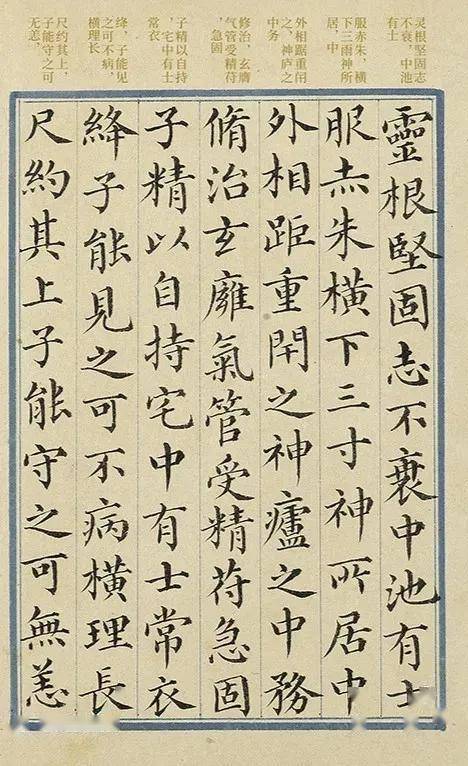 灵根坚固志
不衰，中池
有士
服赤朱，横
下三雨神所
居，中
外相踞重闭
之，神庐之
中务
修治，玄膺
气管受精苻
，急固
子精以自持
，宅中有士
常衣
绛，子能见
之可不病，
横理长
尺约其上，
子能守之可
无恙，
靈根堅固志不衰中池有士
服赤朱橫下三寸神所居中
外相距重閇之神廬之中務
脩治玄廱氣管受精苻急固
子精以自持宅中有士常衣
絳子能見之可不病橫理長
尺約其上子能守之可無恙